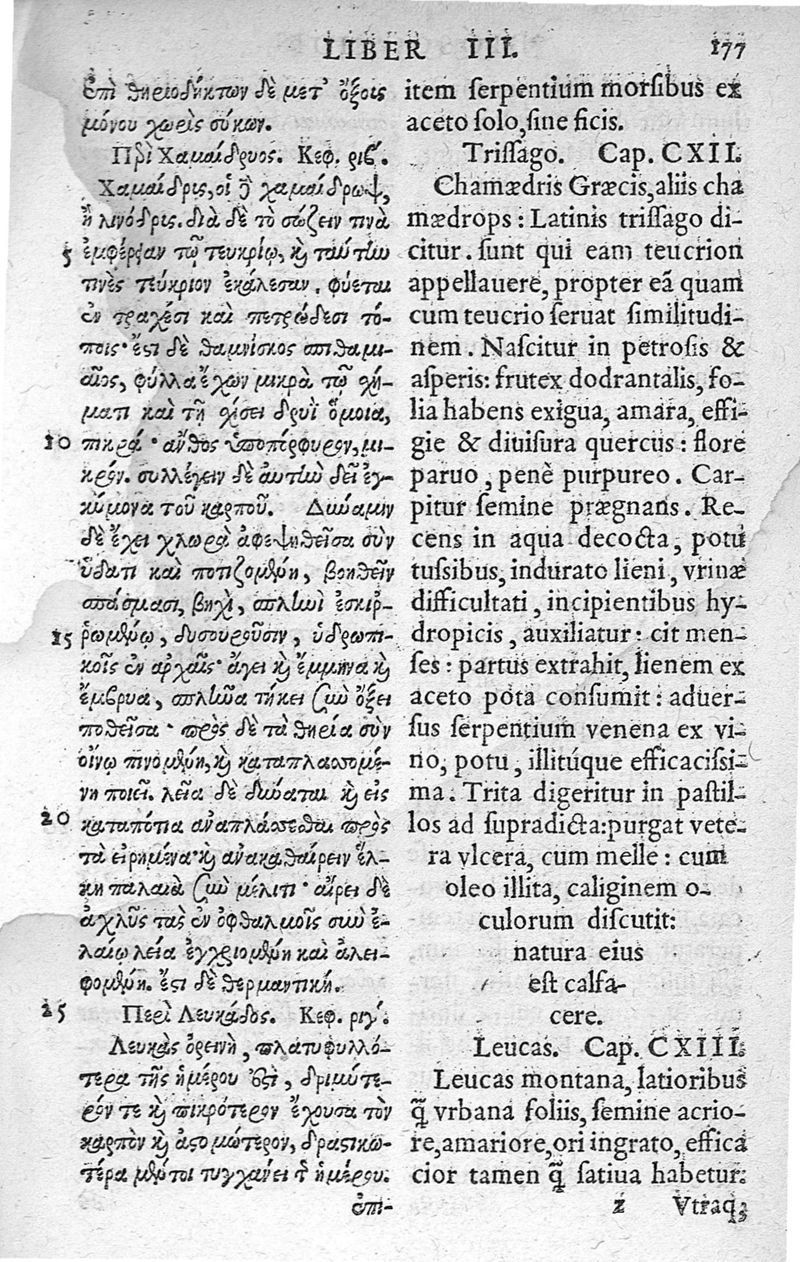 LIBER III. 177
Ἐπὶ θηριοδήκτων δὲ μετ' ὄξοις
μόνου χωρὶς σύκων.
Περὶ Χαμαίδρυος. Κεφ. ριβ'.
Χαμαίδρις, οἱ δὲ χαμαίδρωψ,
ἢ λινόδρις. διὰ δὲ τὸ σώζειν τινὰ
5 ἐμφέρειαν τῷ τευκρίῳ, καὶ ταύτην
τινὲς τεύκριον ἐκάλεσαν. φύεται
ἐν τραχέσι καὶ πετρώδεσι τό-
ποις· ἔστι δὲ θαμνίσκος σπιθαμι-
αῖος, φύλλα ἔχων μικρὰ τῷ σχή-
ματι καὶ τῇ σχίσει δρυῒ ὅμοια,
10 πικρά· ἄνθος ὑποπόρφυρον, μι-
κρόν. συλλέγειν δὲ αὐτὴν δεῖ ἐγ-
κύμονα τοῦ καρποῦ. Δύναμιν
δὲ ἔχει χλωρὰ ἀφεψηθεῖσα σὺν
ὕδατι καὶ ποτιζομένη, βοηθεῖν
σπάσμασι, βηχὶ, σπληνὶ ἐσκιρ-
15 ρωμένῳ, δυσουροῦσιν, ὑδρωπι-
κοῖς ἐν ἀρχαῖς· ἄγει καὶ ἔμμηνα καὶ
ἔμβρυα, σπλῆνα τήκει σὺν ὄξει
ποθεῖσα· πρὸς δὲ τὰ θηρία σὺν
οἴνῳ πινομένη, καὶ καταπλασσομέ-
νη ποιεῖ. λεῖα δὲ δύναται καὶ εἰς
20 καταπότια ἀναπλάσσεσθαι πρὸς
τὰ εἰρημένα· καὶ ἀνακαθαίρειν ἕλ-
κη παλαιὰ σὺν μέλιτι· αἴρει δὲ
ἀχλῦς τὰς ἐν ὀφθαλμοῖς σὺν ἐ-
λαίῳ λεία ἐγχριομένη καὶ ἀλει-
φομένη. ἔστι δὲ θερμαντική.
25 Περὶ Λευκάδος. Κεφ. ριγ'.
Λευκὰς ὀρεινὴ, πλατυφυλλό-
τερα τῆς ἡμέρου ἐστὶ, δριμύτε-
ρόν τε καὶ πικρότερον ἔχουσα τὸν
καρπὸν καὶ ἀστομώτερον, δραστικω-
τέρα μέντοι τυγχάνει τῆς ἡμέρου.
ἐπι-
item serpentium morsibus ex
aceto solo, sine ficis.
Trissago. Cap. CXII.
Chamædris Græcis, aliis cha
mædrops: Latinis trissago di-
citur. sunt qui eam teucrion
appellauere, propter eã quam
cum teucrio seruat similitudi-
nem. Nascitur in petrosis &
asperis: frutex dodrantalis, fo-
lia habens exigua, amara, effi-
gie & diuisura quercus: flore
paruo, penè purpureo. Car-
pitur semine prægnans. Re-
cens in aqua decocta, potu
tussibus, indurato lieni, vrinæ
difficultati, incipientibus hy-
dropicis, auxiliatur: cit men-
ses: partus extrahit, lienem ex
aceto pota consumit: aduer-
sus serpentium venena ex vi-
no, potu, illitúque efficacissi-
ma. Trita digeritur in pastil-
los ad supradicta: purgat vete-
ra vlcera, cum melle: cum
oleo illita, caliginem o-
culorum discutit:
natura eius
est calfa-
cere.
Leucas. Cap. CXIII.
Leucas montana, latioribus
q̃ vrbana foliis, semine acrio-
re, amariore, ori ingrato, effica
cior tamen q̃ satiua habetur.
z Vtraq;